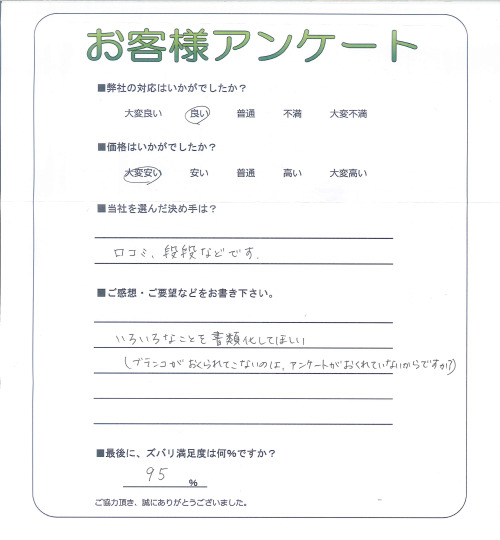 お客様アンケート
■弊社の対応はいかがでしたか？
大変良い 良い 普通 不満 大変不満
■価格はいかがでしたか？
大変安い 安い 普通 高い 大変高い
■当社を選んだ決め手は？
口コミ、段段などです.
■ご感想・ご要望などをお書き下さい。
いろいろなことを書類化してほしい
(ブランコがおくられてこないのは、アンケートがおくれていないからですか?)
■最後に、ズバリ満足度は何%ですか？
95 %
ご協力頂き、誠にありがとうございました。